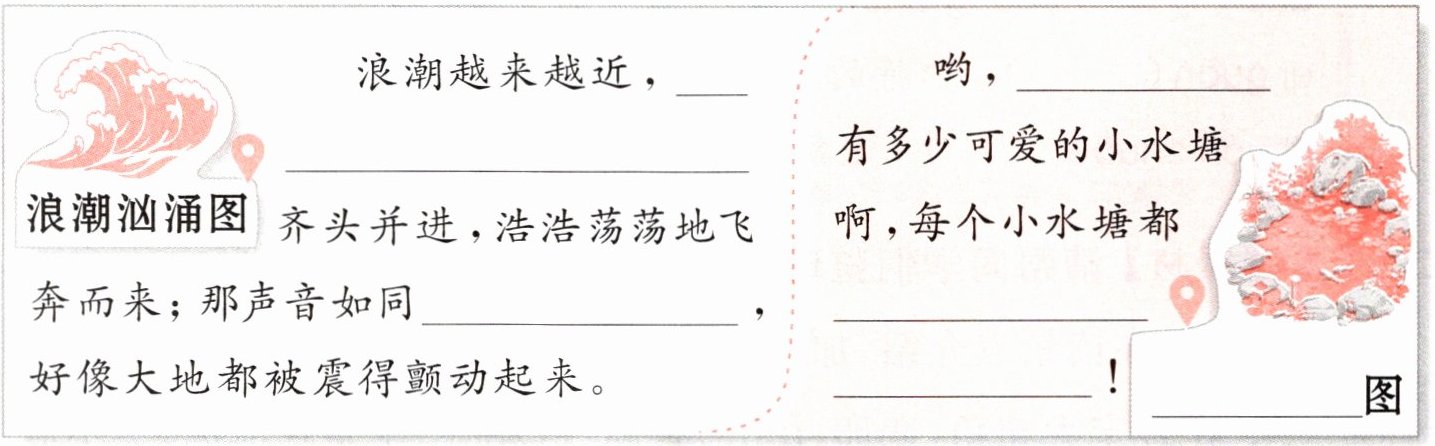 浪潮越来越近，____
____________
浪潮汹涌图
齐头并进，浩浩荡荡地飞
奔而来；那声音如同____________，
好像大地都被震得颤动起来。
哟，____________
有多少可爱的小水塘
啊，每个小水塘都
____________
____________！
____________图